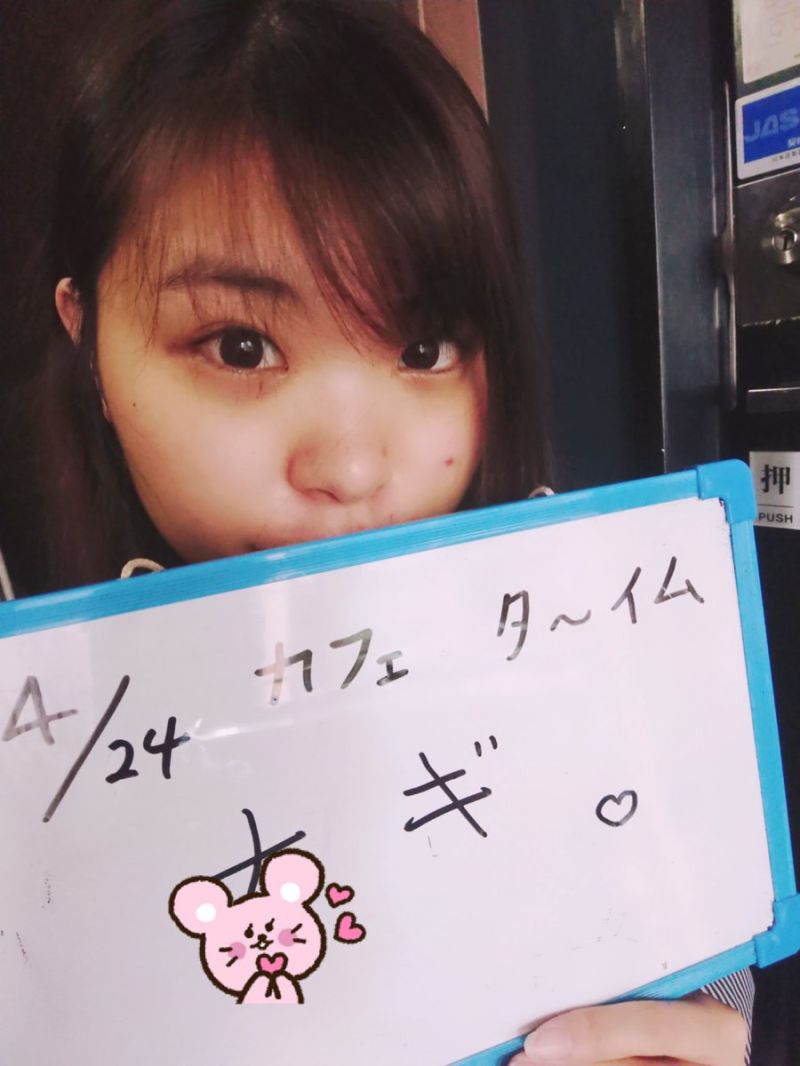 JAS
押
PUSH
4/24 カフェ タ〜イム
ナギ ♡